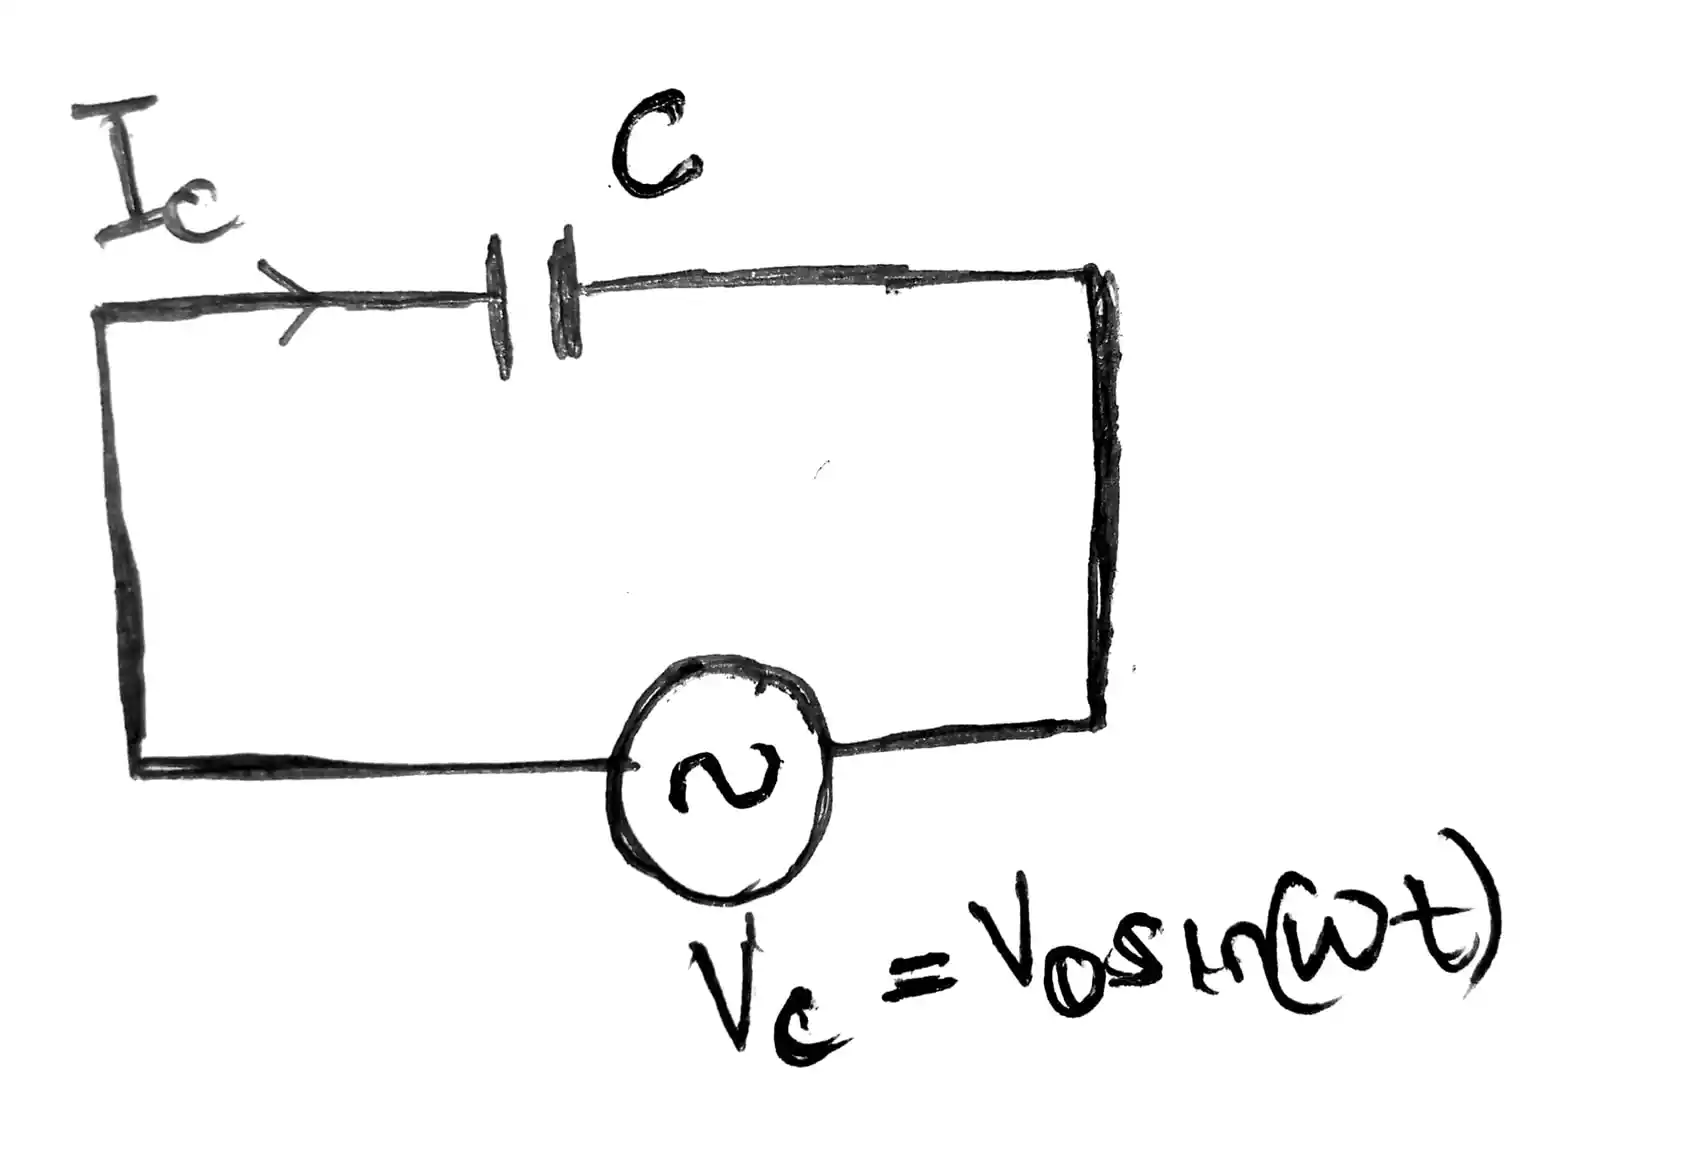 I_c
C
~
V_c = V_0 sin(ωt)